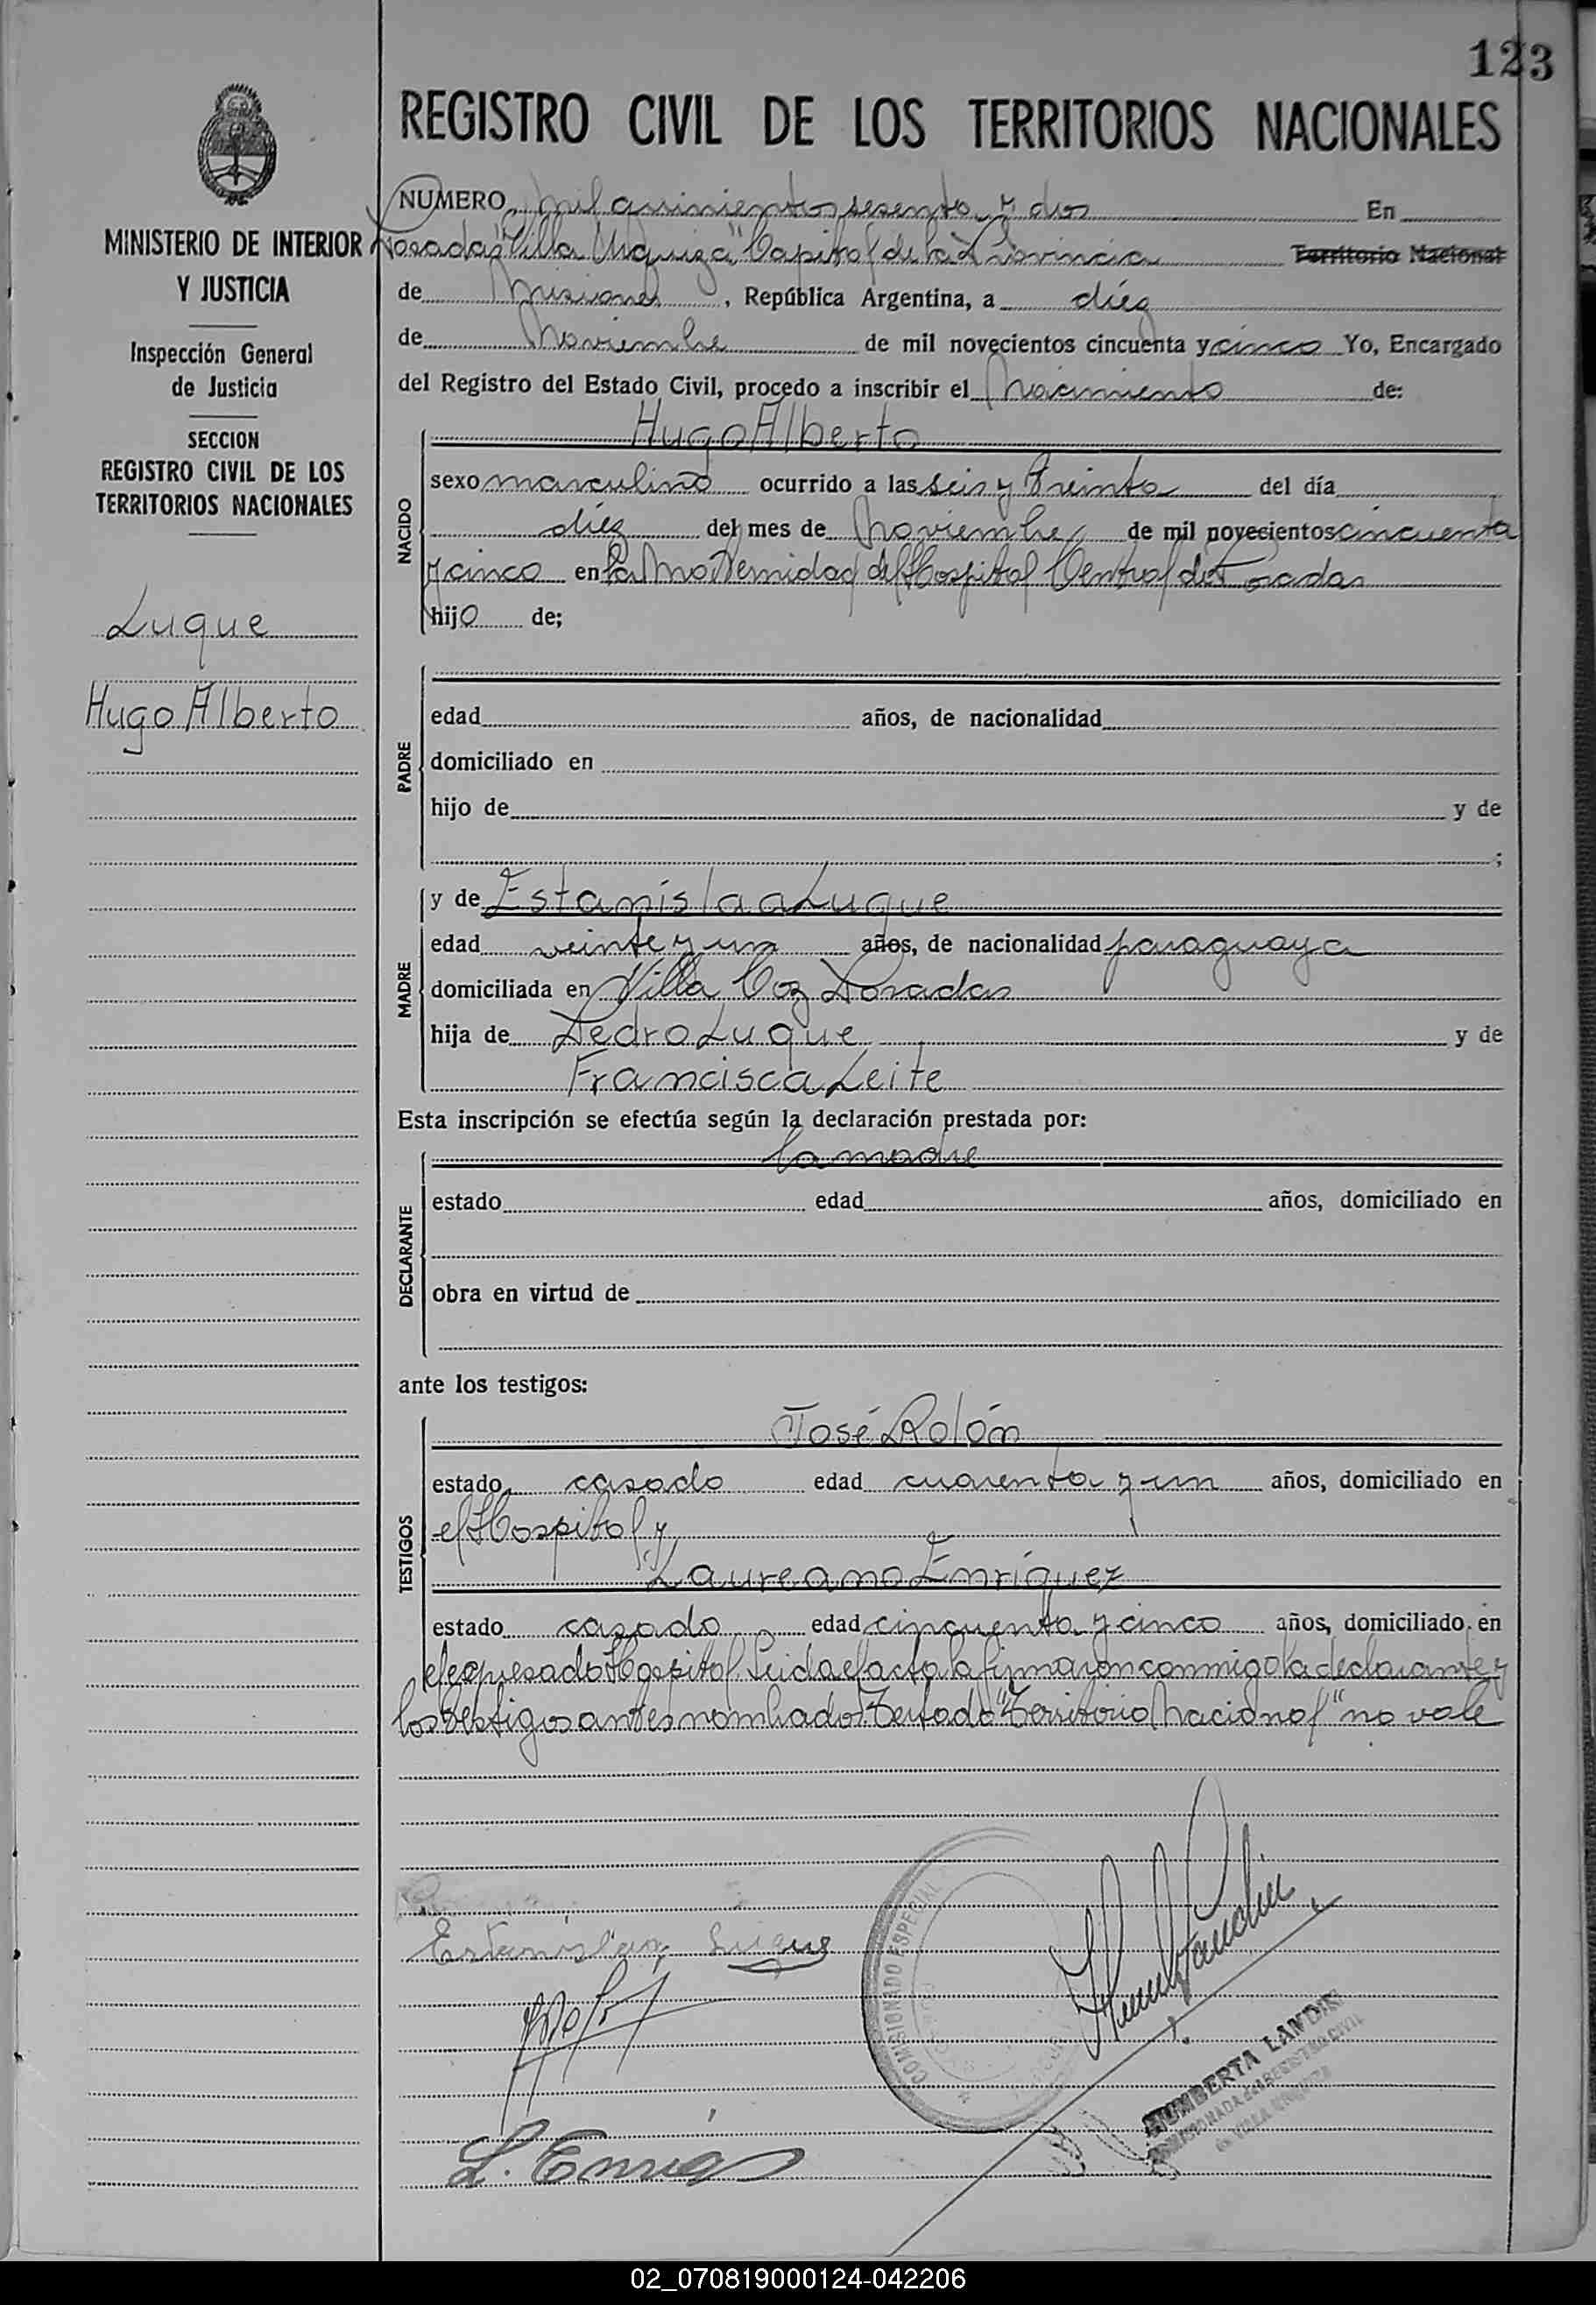 123
REGISTRO CIVIL DE LOS TERRITORIOS NACIONALES
MINISTERIO DE INTERIOR
Y JUSTICIA
Inspección General
de Justicia
SECCION
REGISTRO CIVIL DE LOS
TERRITORIOS NACIONALES
Luque
Hugo Alberto
NUMERO mil quinientos sesenta y dos En
Posadas "Villa Urquiza" Capital de la Provincia Territorio Nacional
de Misiones, República Argentina, a diéz
de Noviembre de mil novecientos cincuenta y cinco Yo, Encargado
del Registro del Estado Civil, procedo a inscribir el Nacimiento de:
NACIDO
Hugo Alberto
sexo masculino ocurrido a las seis y treinta del día
diéz del mes de Noviembre de mil novecientos cincuenta
y cinco en la Maternidad del Hospital Central de Posadas
hijo de;
PADRE
edad años, de nacionalidad
domiciliado en
hijo de y de
;
MADRE
y de Estanislaa Luque
edad veinte y un años, de nacionalidad paraguaya
domiciliada en Villa Coz Posadas
hija de Pedro Luque y de
Francisca Leite
Esta inscripción se efectúa según la declaración prestada por:
DECLARANTE
la madre
estado edad años, domiciliado en
obra en virtud de
ante los testigos:
TESTIGOS
José Rolón
estado casado edad cuarenta y un años, domiciliado en
el Hospital y
Laureano Enríquez
estado casado edad cincuenta y cinco años, domiciliado en
el expresado Hospital. Leida el acta la firmaron conmigo la declarante y
los testigos antes nombrados. Testado "Territorio Nacional" no vale
Estanislaa Luque
L. Enriq
COMISIONADO ESPECIAL
HUMBERTA LANDIN
02_070819000124-042206